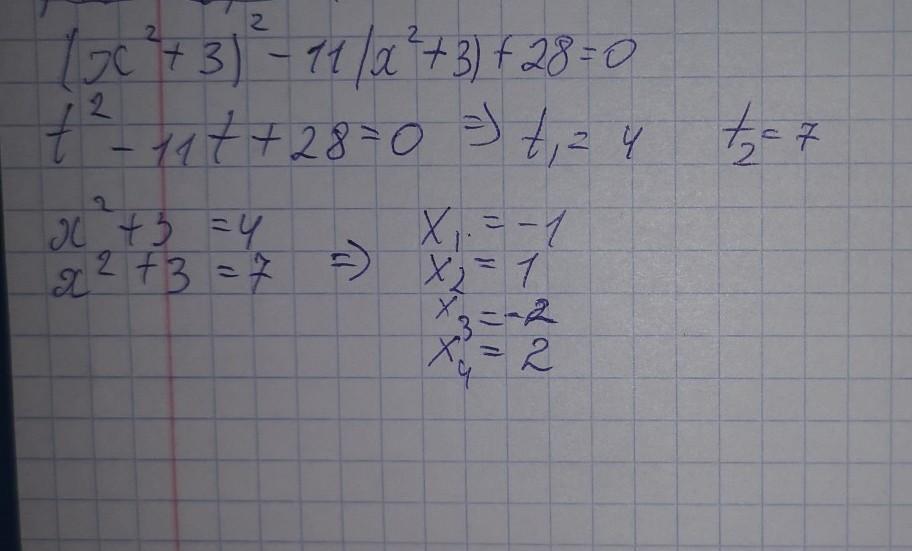 (x² + 3)² - 11(x² + 3) + 28 = 0
t² - 11t + 28 = 0 ⇒ t₁ = 4 t₂ = 7
x² + 3 = 4
x² + 3 = 7 ⇒
x₁ = -1
x₂ = 1
x₃ = -2
x₄ = 2